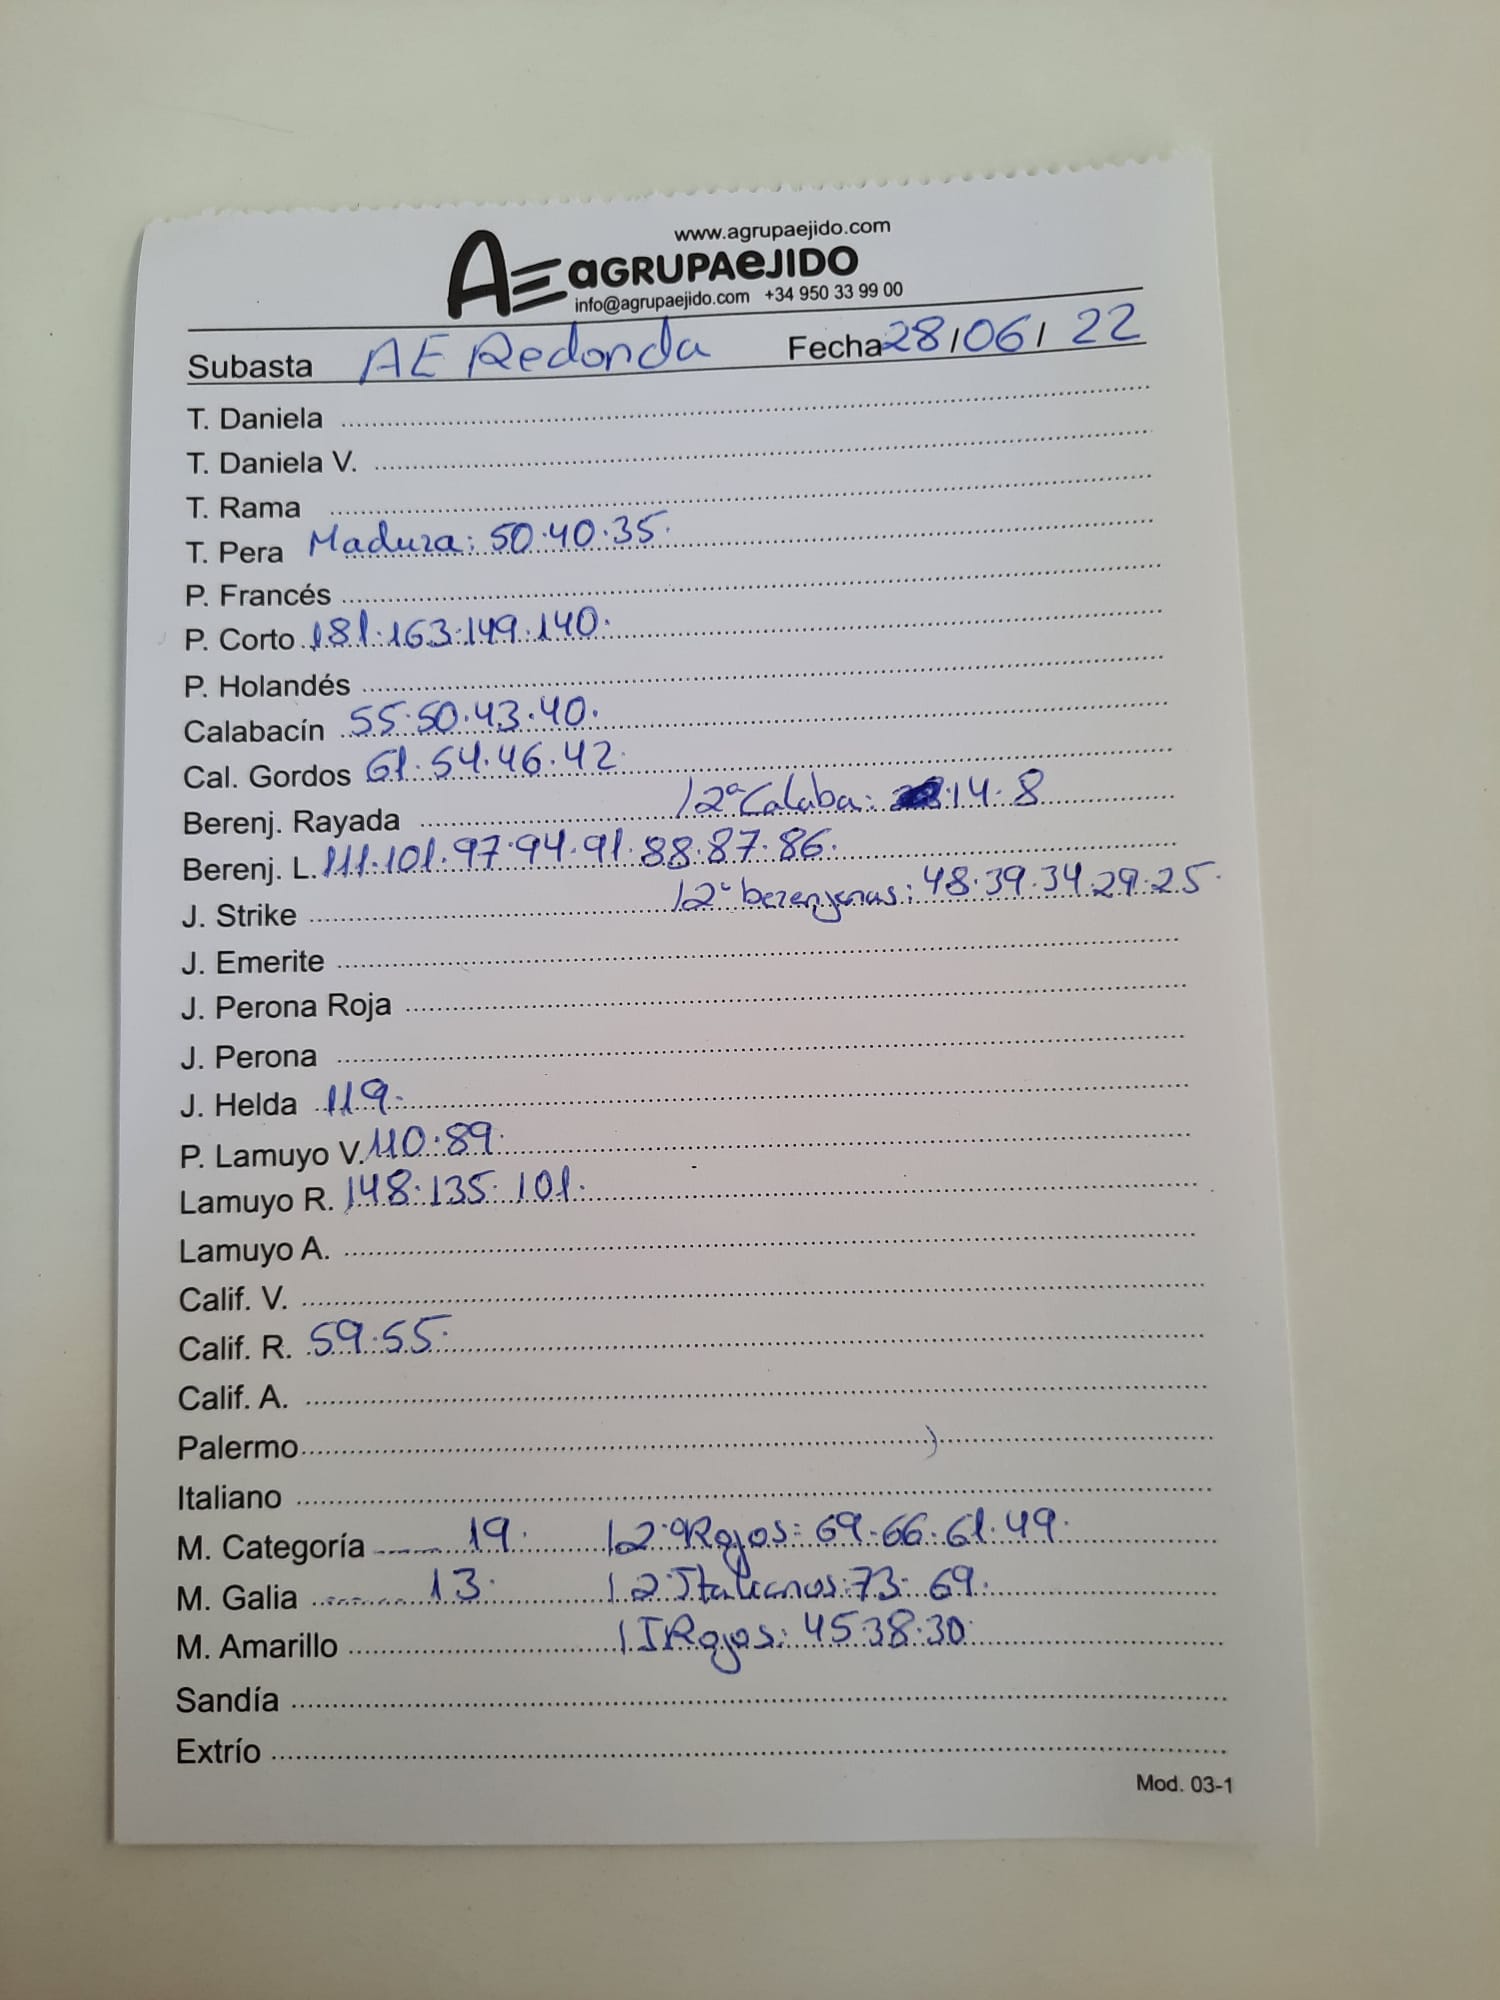 www.agrupaejido.com
AE aGRUPAeJIDO
info@agrupaejido.com +34 950 33 99 00
Subasta AE Redonda Fecha 28/06/22
T. Daniela
T. Daniela V.
T. Rama
T. Pera Madura: 50.40.35.
P. Francés
P. Corto 181.163.149.140.
P. Holandés
Calabacín 55.50.43.40.
Cal. Gordos 61.54.46.42.
Berenj. Rayada /2ª Calaba: 14.8
Berenj. L. 111.101.97.94.91.88.87.86.
J. Strike /2ª berenjenas: 48.39.34.29.25.
J. Emerite
J. Perona Roja
J. Perona
J. Helda 119.
P. Lamuyo V. 110.89.
Lamuyo R. 148.135.101.
Lamuyo A.
Calif. V.
Calif. R. 59.55.
Calif. A.
Palermo
Italiano
M. Categoría 19. /2ª Rojos: 69.66.61.49.
M. Galia 13. /2ª Italianos: 73.69.
M. Amarillo /I Rojos: 45.38.30.
Sandía
Extrío
Mod. 03-1